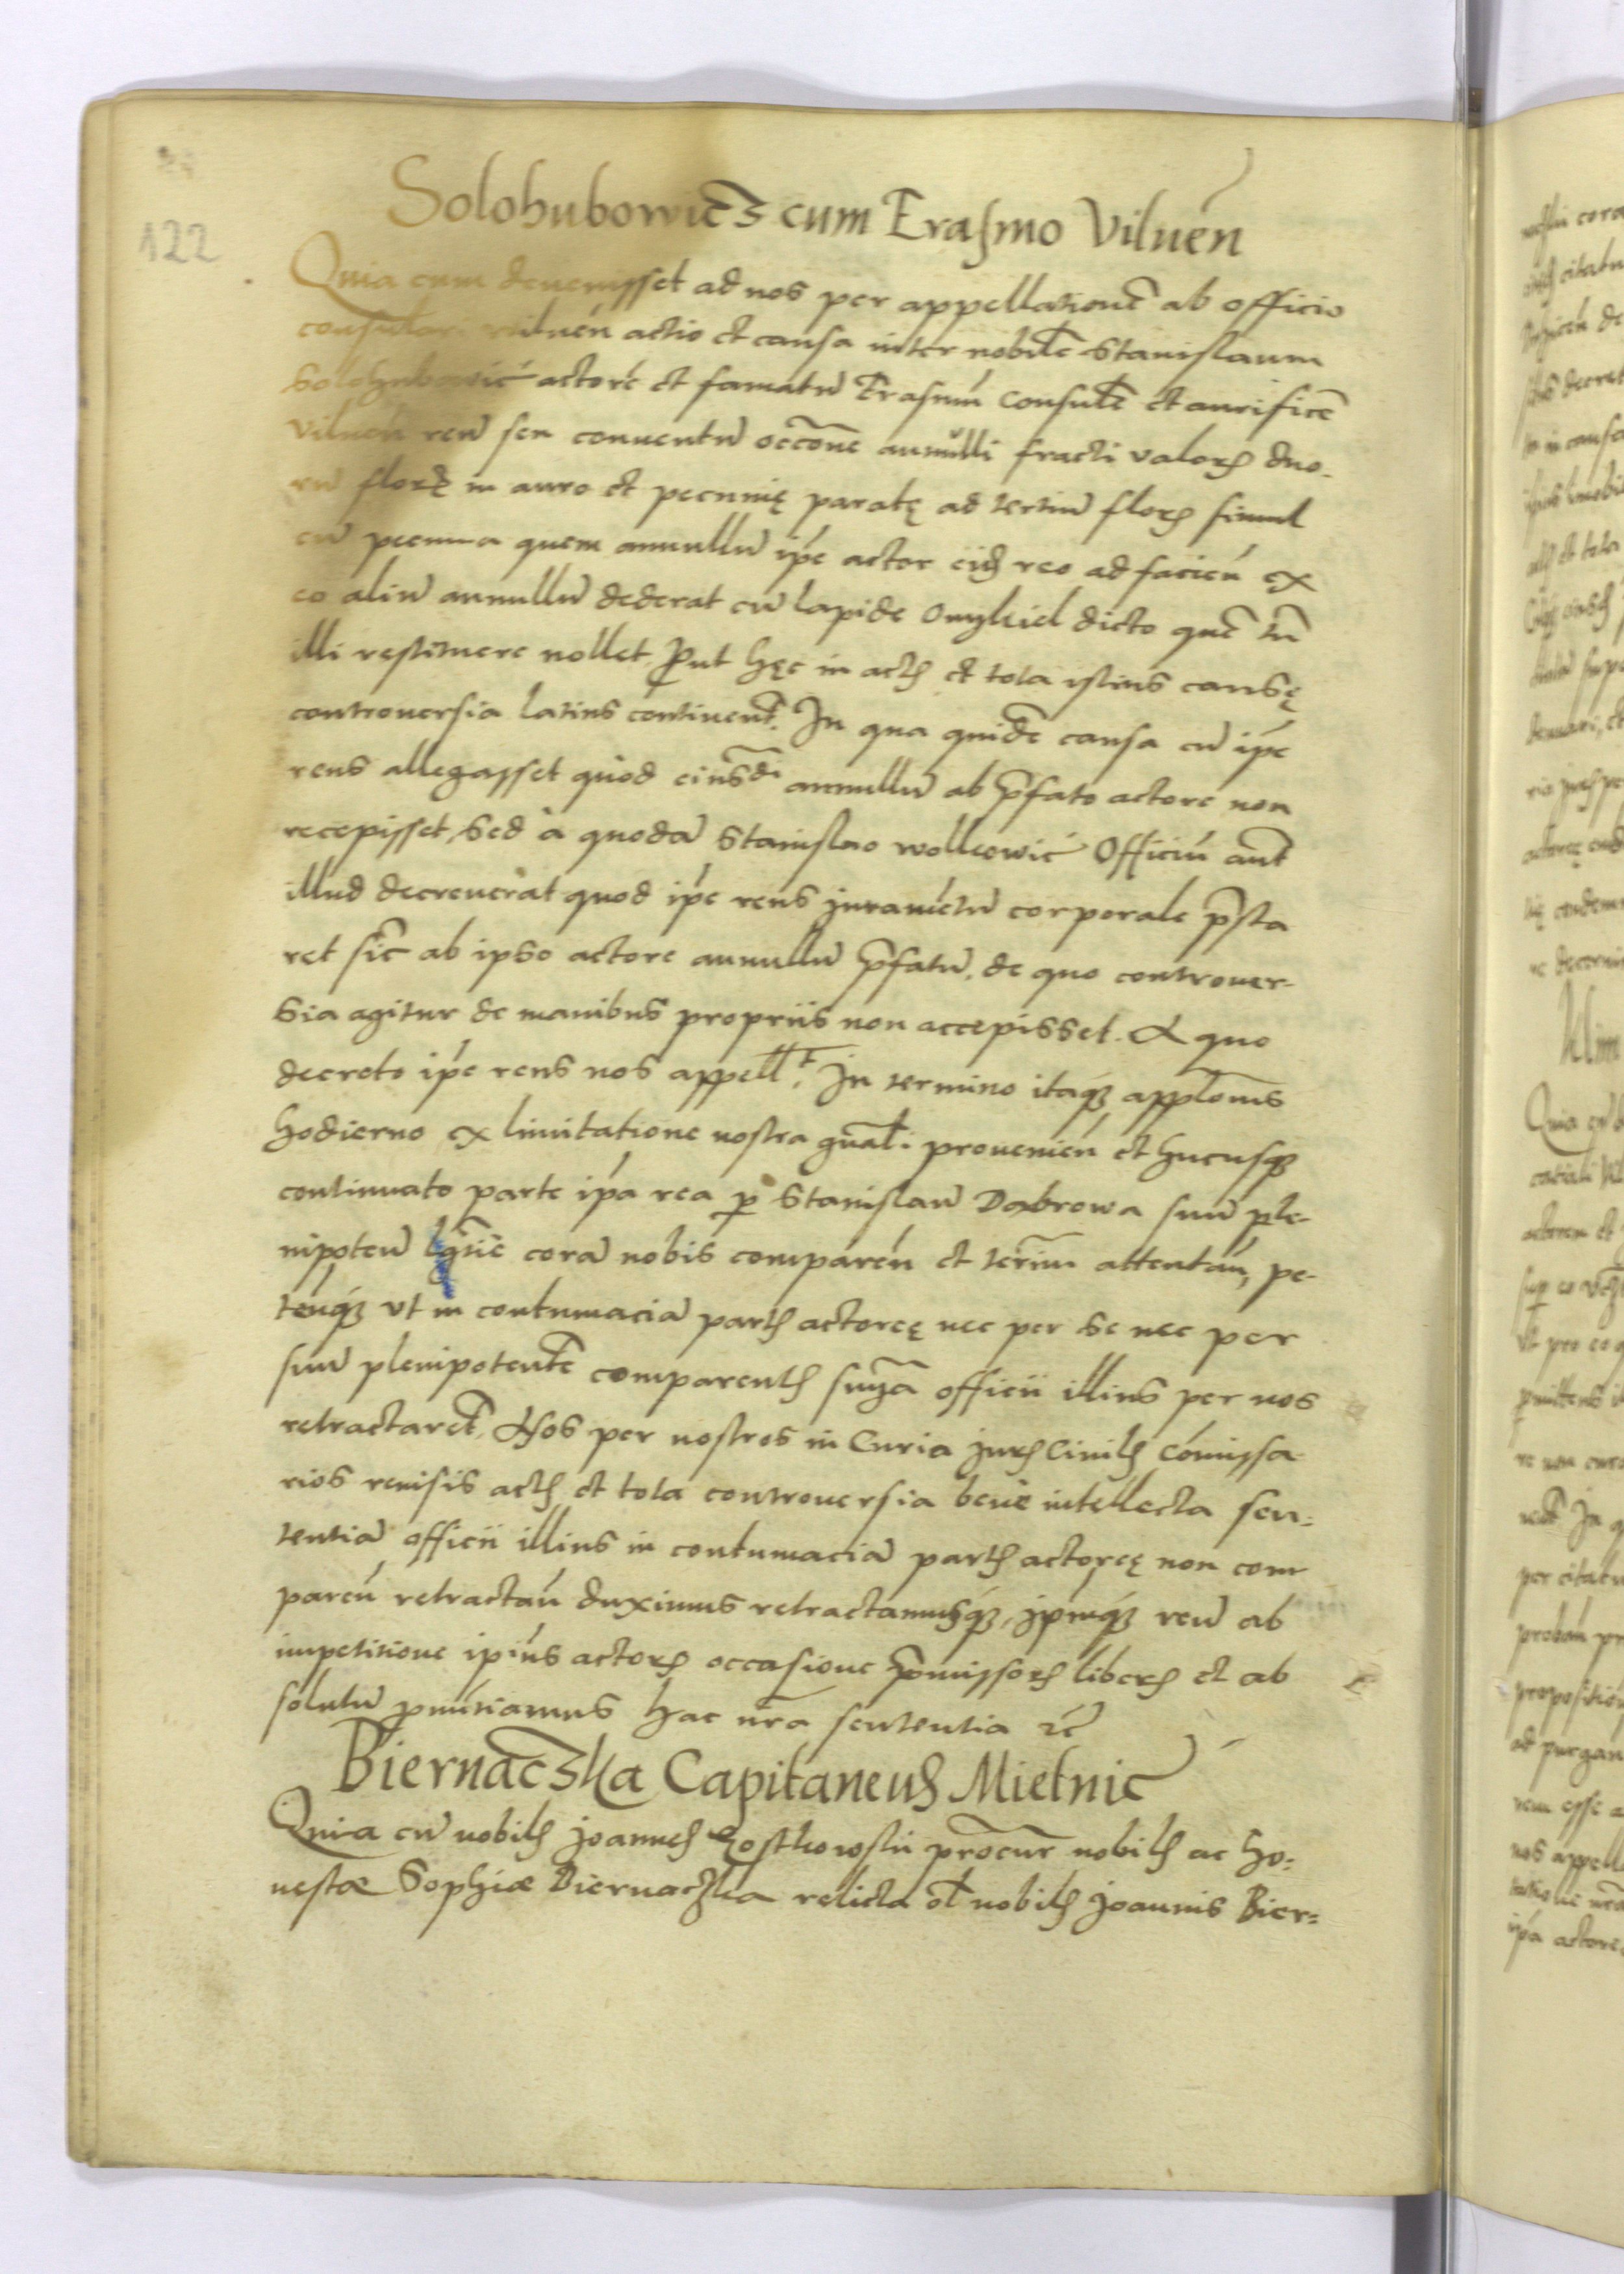 122
Solohubowicz cum Erasmo Vilnen̄
Quia cum devenisset ad nos per appellationē ab officio
consulari vilnen̄ actio et causa inter nobilē Stanislaum
Solohubowić actorē et famatū Erasmū Consulē et aurificē
vilnen̄ reū seu conventū occōne annulli fracti valoris duo-
rū florę in auro et pecunię paratę ad tertiū floris simul
cū pecunia quem annullū ip̄e actor eid reo ad facien̄ ex
eo aliū annullū dederat cū lapide Onykiel dicto quē tn̄
illi restituere nollet, Put hęc in actis et tota istius causę
controversia latius continent. In qua quidē causa cū ip̄e
reus allegasset quod eiusdi annullū ab p̄fato actore non
recepisset, Sed à quodā Stanislao wolkowić Officiū aut̄
illud decreverat quod ip̄e reus juramētū corporale p̄sta
ret sic̄ ab ipso actore annullū p̄fatū, de quo controver-
sia agitur de manibus propriis non accepisset. A quo
decreto ip̄e reus nos appellt. In termino itaq₃ applōnis
hodierno ex limitatione nostra gn̄ali provenien̄ et hucusq₃
continuato parte ip̄a rea p Stanislaū Dabrowa suū ple-
nipoten̄ lgtīē corā nobis comparen̄ et termīn attentan̄, pe-
tenq₃ ut in contumaciā partis actoreę nec per se nec per
suū plenipotentē comparentis sn̄ia officii illius per nos
retractaret̄, Nos per nostros in Curia juris Civilis Cōmissa
rios revisis actis et tota controversia bene intellecta sen-
tentiā officii illius in contumaciā partis actoreę non com
paren̄ retractan̄ duximus retractamusq₃, jpmq₃ reū ab
impetitione ipīus actoris occasione p̄missoris liberis et ab
solutū pnūtiamus hac nr̄a sententia rc̄
Biernaczka Capitaneus Mietnic
Quia cū nobilis Joannes Kostkowski procur̄ nobilis ac ho-
nestae Sophiae Biernaczka relicta ol̄ nobilis Joannis Bier-